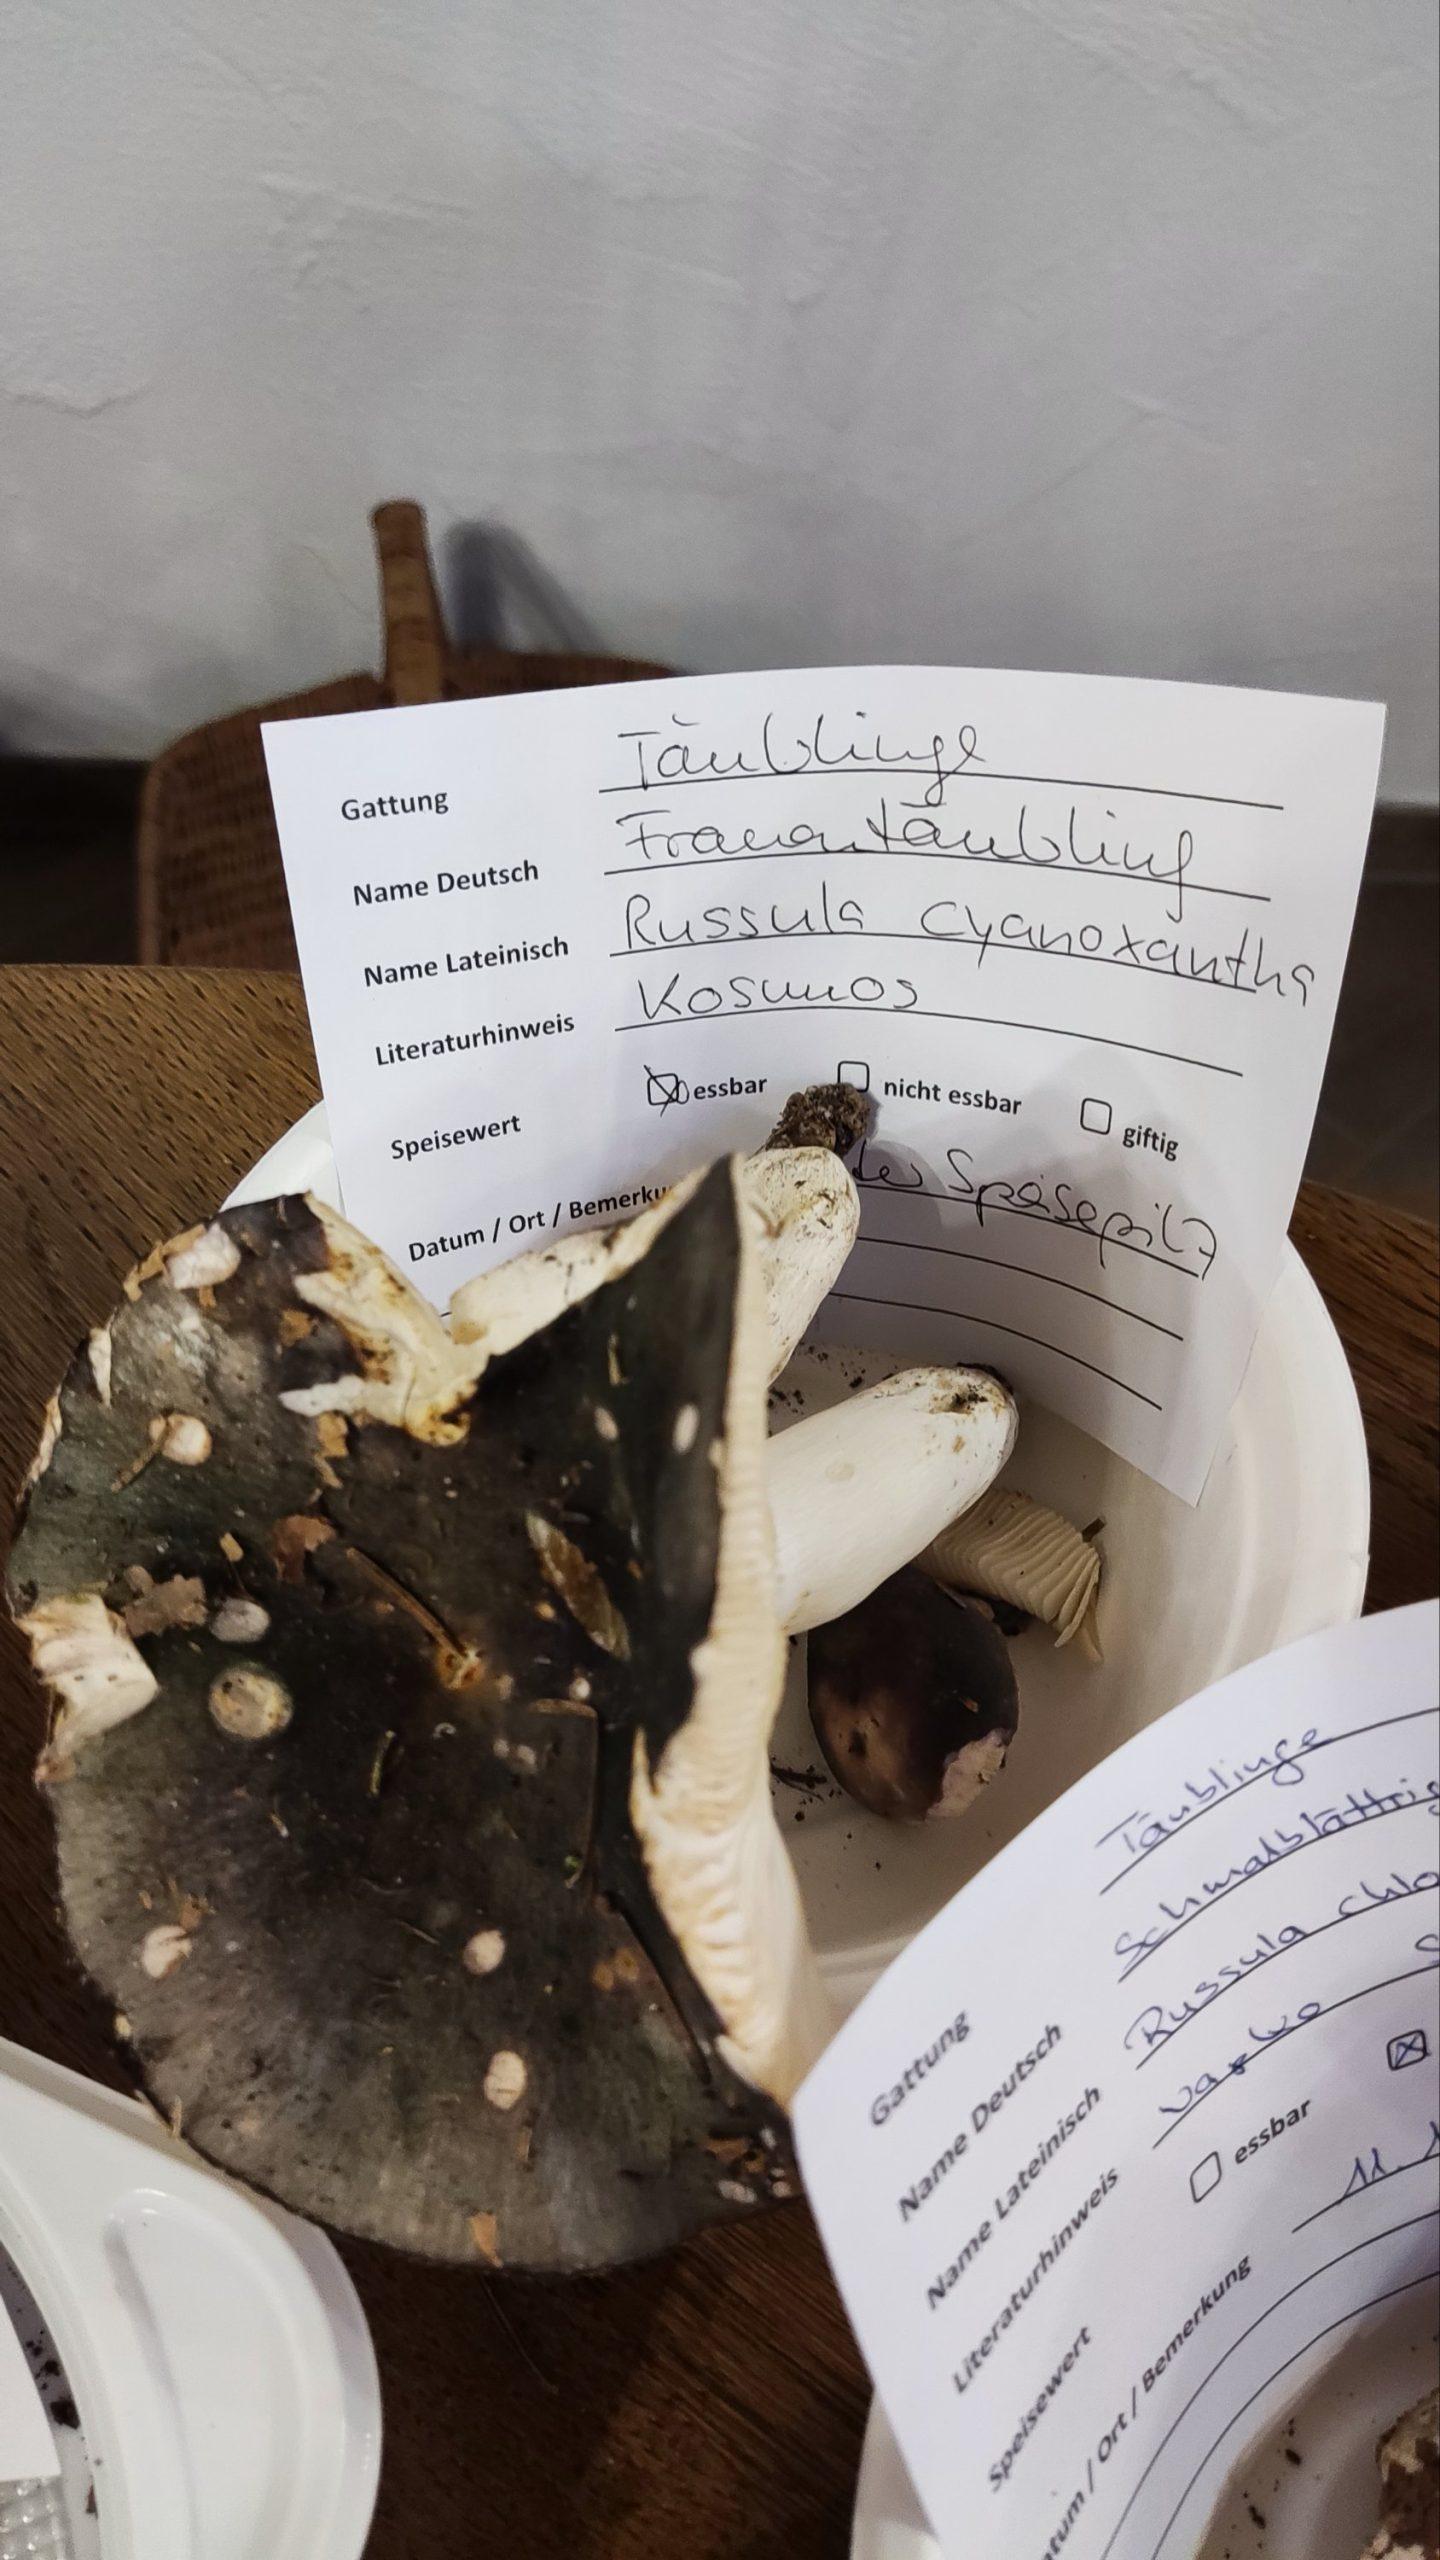 Gattung Täublinge
Name Deutsch Frauentäubling
Name Lateinisch Russula cyanoxantha
Literaturhinweis Kosmos
Speisewert essbar nicht essbar giftig
Datum / Ort / Bemerku Speisepilz
Gattung Täublinge
Name Deutsch Schmalblättrig
Name Lateinisch Russula chlo
Literaturhinweis
Speisewert essbar
Datum / Ort / Bemerkung 11.